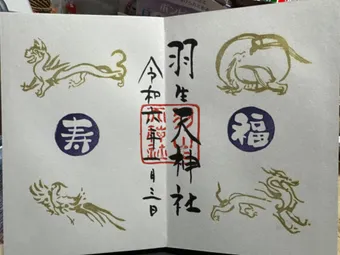 福
羽生天神社
令和六年
月三日
寿